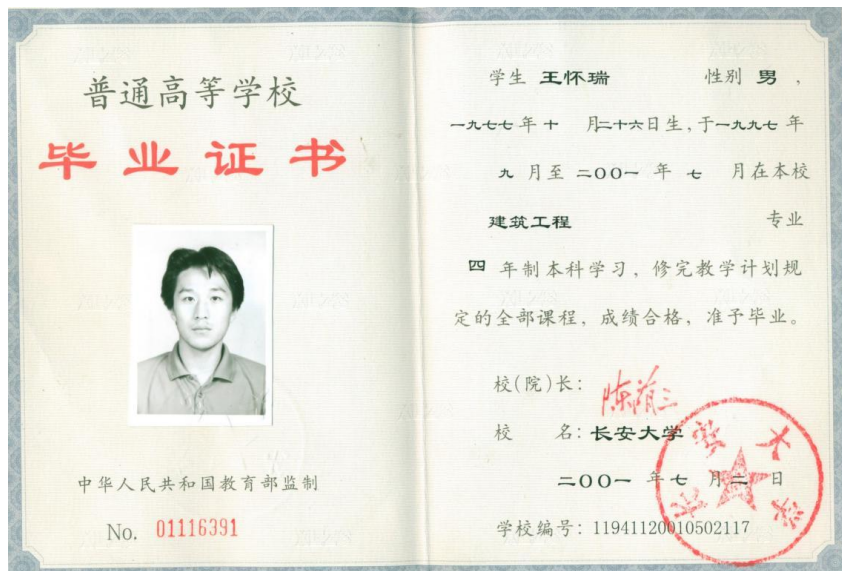 普通高等学校
毕业证书
中华人民共和国教育部监制
No. 01116391
学生 王怀瑞 性别 男，
一九七七年十 月二十六日生，于一九九七年
九 月至 二〇〇一 年 七 月在本校
建筑工程 专业
四 年制本科学习，修完教学计划规
定的全部课程，成绩合格，准予毕业。
校(院)长：
校 名：长安大学
二〇〇一 年七 月二 日
学校编号：11941120010502117
长安大学